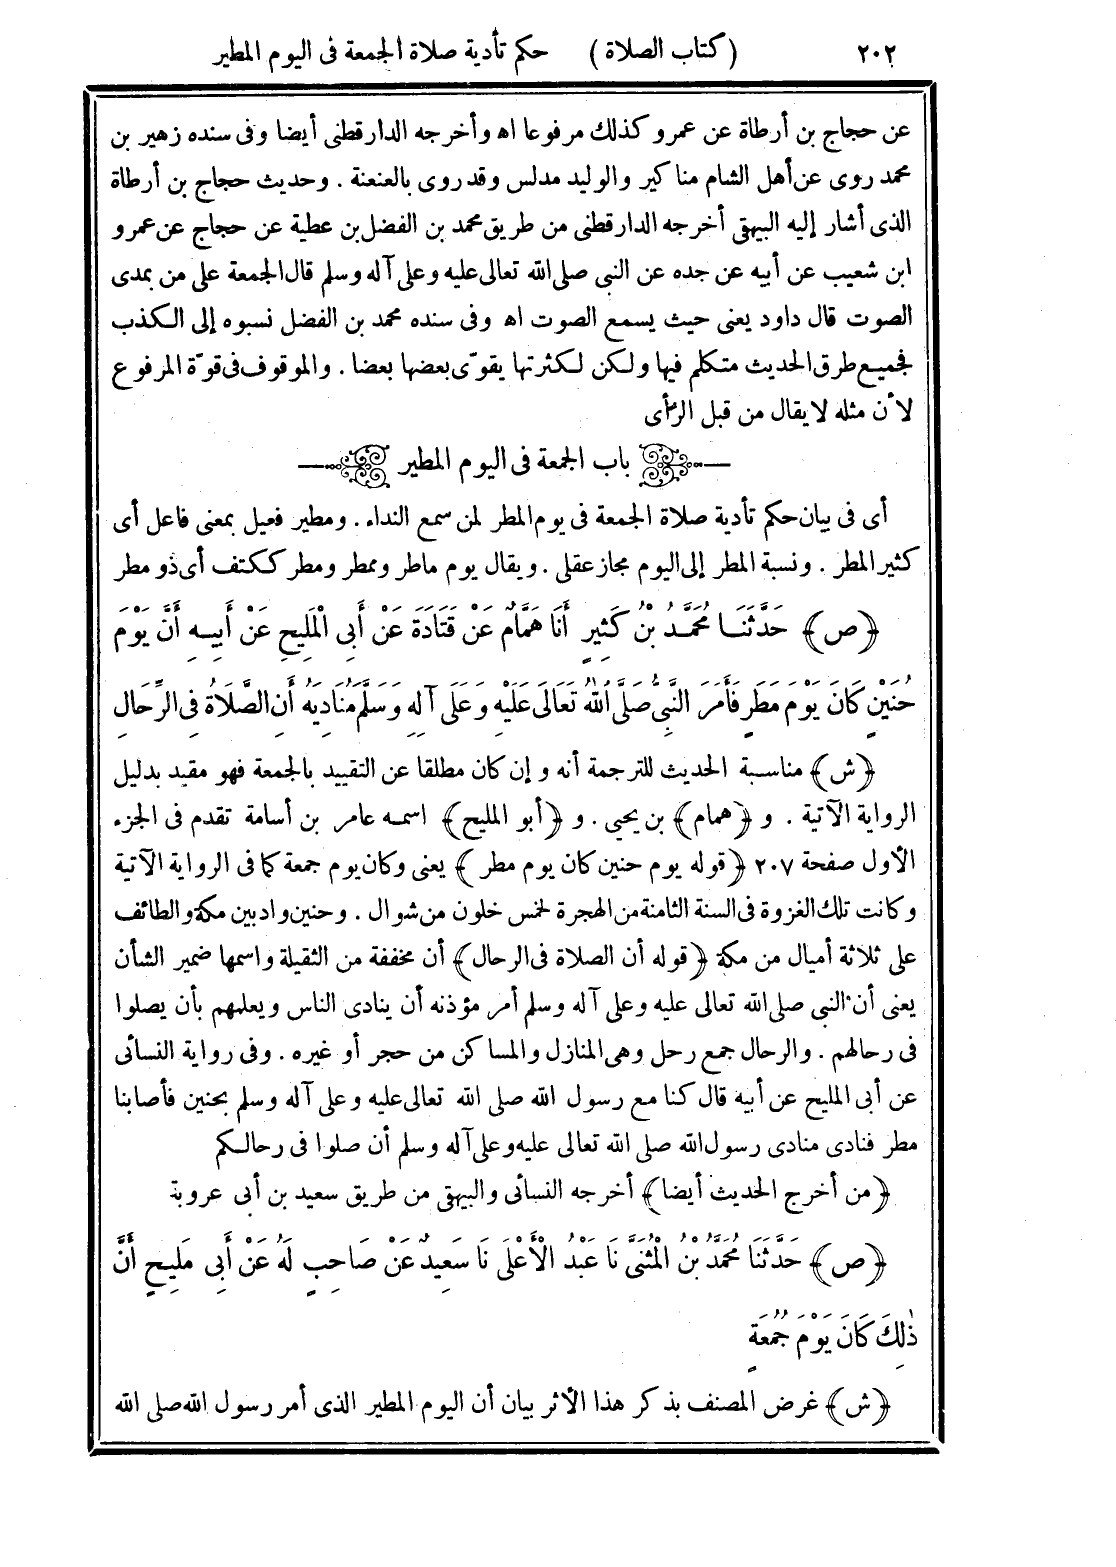 ٢٠٢ (كتاب الصلاة) حكم تأدية صلاة الجمعة فى اليوم المطير
عن حجاج بن أرطاة عن عمرو كذلك مرفوعا اه وأخرجه الدارقطنى أيضا وفى سنده زهير بن
محمد روى عن أهل الشام مناكير والوليد مدلس وقد روى بالعنعنة . وحديث حجاج بن أرطاة
الذى أشار إليه البيهقى أخرجه الدارقطنى من طريق محمد بن الفضل بن عطية عن حجاج عن عمرو
ابن شعيب عن أبيه عن جده عن النبى صلى الله تعالى عليه وعلى آله وسلم قال الجمعة على من بمدى
الصوت قال داود يعنى حيث يسمع الصوت اه وفى سنده محمد بن الفضل نسبوه إلى الكذب
فجميع طرق الحديث متكلم فيها ولكن لكثرتها يقوّى بعضها بعضا . والموقوف فى قوّة المرفوع
لأن مثله لا يقال من قبل الرأى
باب الجمعة فى اليوم المطير
أى فى بيان حكم تأدية صلاة الجمعة فى يوم المطر لمن سمع النداء . ومطير فعيل بمعنى فاعل أى
كثير المطر . ونسبة المطر إلى اليوم مجاز عقلى . ويقال يوم ماطر وممطر ومطر ككتف أى ذو مطر
﴿ص﴾ حَدَّثَنَا مُحَمَّدُ بْنُ كَثِيرٍ أَنَا هَمَّامٌ عَنْ قَتَادَةَ عَنْ أَبِى الْمَلِيحِ عَنْ أَبِيهِ أَنَّ يَوْمَ
حُنَيْنٍ كَانَ يَوْمَ مَطَرٍ فَأَمَرَ النَّبِىُّ صَلَّى اللهُ تَعَالَى عَلَيْهِ وَعَلَى آلِهِ وَسَلَّمَ مُنَادِيَهُ أَنِ الصَّلَاةُ فِى الرِّحَالِ
﴿ش﴾ مناسبة الحديث للترجمة أنه وإن كان مطلقا عن التقييد بالجمعة فهو مقيد بدليل
الرواية الآتية . و ﴿همام﴾ بن يحيى . و ﴿أبو المليح﴾ اسمه عامر بن أسامة تقدم فى الجزء
الأول صفحة ٢٠٧ ﴿قوله يوم حنين كان يوم مطر﴾ يعنى وكان يوم جمعة كما فى الرواية الآتية
وكانت تلك الغزوة فى السنة الثامنة من الهجرة لخمس خلون من شوال . وحنين واد بين مكة والطائف
على ثلاثة أميال من مكة ﴿قوله أن الصلاة فى الرحال﴾ أن مخففة من الثقيلة واسمها ضمير الشأن
يعنى أن النبى صلى الله تعالى عليه وعلى آله وسلم أمر مؤذنه أن ينادى الناس ويعلمهم بأن يصلوا
فى رحالهم . والرحال جمع رحل وهى المنازل والمساكن من حجر أو غيره . وفى رواية النسائى
عن أبى المليح عن أبيه قال كنا مع رسول الله صلى الله تعالى عليه وعلى آله وسلم بحنين فأصابنا
مطر فنادى منادى رسول الله صلى الله تعالى عليه وعلى آله وسلم أن صلوا فى رحالكم
﴿من أخرج الحديث أيضا﴾ أخرجه النسائى والبيهقى من طريق سعيد بن أبى عروبة
﴿ص﴾ حَدَّثَنَا مُحَمَّدُ بْنُ الْمُثَنَّى نَا عَبْدُ الْأَعْلَى نَا سَعِيدٌ عَنْ صَاحِبٍ لَهُ عَنْ أَبِى مَلِيحٍ أَنَّ
ذٰلِكَ كَانَ يَوْمَ جُمُعَةٍ
﴿ش﴾ غرض المصنف بذكر هذا الأثر بيان أن اليوم المطير الذى أمر رسول الله صلى الله